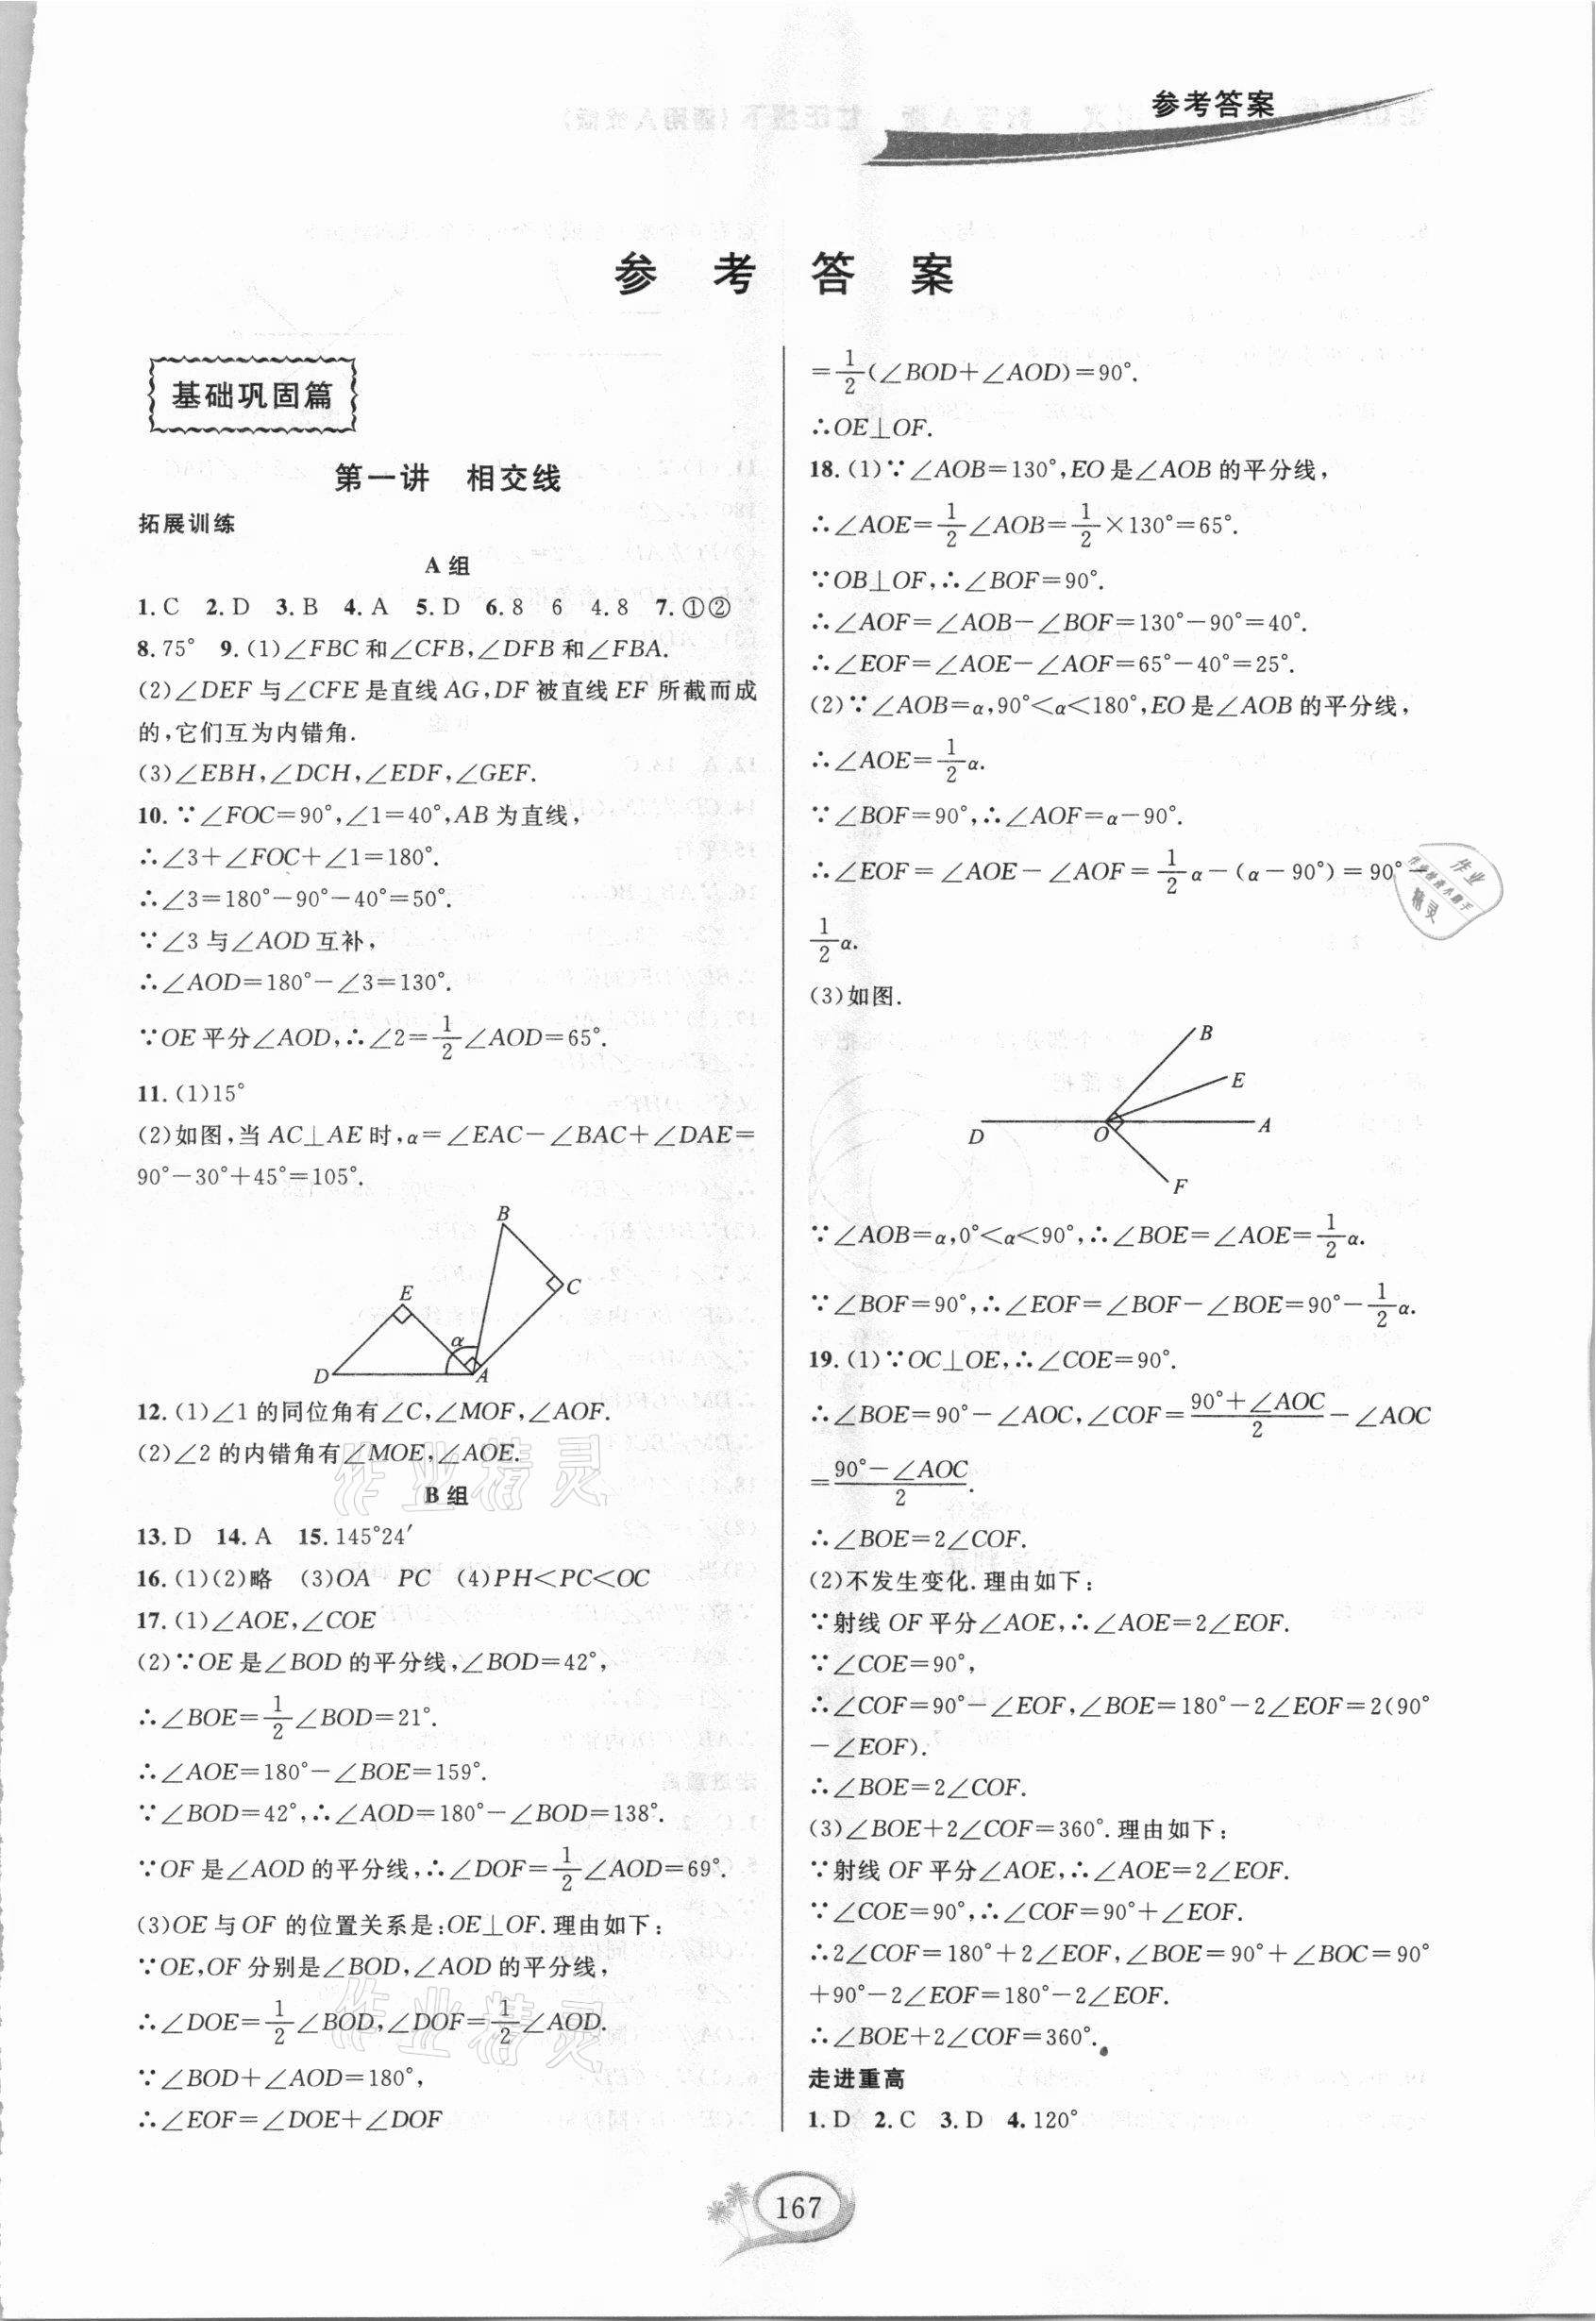 参考答案
参 考 答 案
基础巩固篇
第一讲 相交线
拓展训练
A 组
1. C 2. D 3. B 4. A 5. D 6. 8 6 4.8 7. ①②
8. 75° 9. (1)∠FBC 和∠CFB,∠DFB 和∠FBA.
(2)∠DEF 与∠CFE 是直线 AG,DF 被直线 EF 所截而成
的,它们互为内错角.
(3)∠EBH,∠DCH,∠EDF,∠GEF.
10. ∵∠FOC=90°,∠1=40°,AB 为直线,
∴∠3+∠FOC+∠1=180°.
∴∠3=180°-90°-40°=50°.
∵∠3 与∠AOD 互补,
∴∠AOD=180°-∠3=130°.
∵OE 平分∠AOD,∴∠2=1/2∠AOD=65°.
11. (1)15°
(2)如图,当 AC⊥AE 时,α=∠EAC-∠BAC+∠DAE=
90°-30°+45°=105°.
B
E
C
α
D
A
12. (1)∠1 的同位角有∠C,∠MOF,∠AOF.
(2)∠2 的内错角有∠MOE,∠AOE.
B 组
13. D 14. A 15. 145°24′
16. (1)(2)略 (3)OA PC (4)PH<PC<OC
17. (1)∠AOE,∠COE
(2)∵OE 是∠BOD 的平分线,∠BOD=42°,
∴∠BOE=1/2∠BOD=21°.
∴∠AOE=180°-∠BOE=159°.
∵∠BOD=42°,∴∠AOD=180°-∠BOD=138°.
∵OF 是∠AOD 的平分线,∴∠DOF=1/2∠AOD=69°.
(3)OE 与 OF 的位置关系是:OE⊥OF.理由如下:
∵OE,OF 分别是∠BOD,∠AOD 的平分线,
∴∠DOE=1/2∠BOD,∠DOF=1/2∠AOD.
∵∠BOD+∠AOD=180°,
∴∠EOF=∠DOE+∠DOF
=1/2(∠BOD+∠AOD)=90°.
∴OE⊥OF.
18. (1)∵∠AOB=130°,EO 是∠AOB 的平分线,
∴∠AOE=1/2∠AOB=1/2×130°=65°.
∵OB⊥OF,∴∠BOF=90°.
∴∠AOF=∠AOB-∠BOF=130°-90°=40°.
∴∠EOF=∠AOE-∠AOF=65°-40°=25°.
(2)∵∠AOB=α,90°<α<180°,EO 是∠AOB 的平分线,
∴∠AOE=1/2α.
∵∠BOF=90°,∴∠AOF=α-90°.
∴∠EOF=∠AOE-∠AOF=1/2α-(α-90°)=90°-
1/2α.
(3)如图.
B
E
D
O
A
F
∵∠AOB=α,0°<α<90°,∴∠BOE=∠AOE=1/2α.
∵∠BOF=90°,∴∠EOF=∠BOF-∠BOE=90°-1/2α.
19. (1)∵OC⊥OE,∴∠COE=90°.
∴∠BOE=90°-∠AOC,∠COF=(90°+∠AOC)/2-∠AOC
=(90°-∠AOC)/2.
∴∠BOE=2∠COF.
(2)不发生变化.理由如下:
∵射线 OF 平分∠AOE,∴∠AOE=2∠EOF.
∵∠COE=90°,
∴∠COF=90°-∠EOF,∠BOE=180°-2∠EOF=2(90°
-∠EOF).
∴∠BOE=2∠COF.
(3)∠BOE+2∠COF=360°.理由如下:
∵射线 OF 平分∠AOE,∴∠AOE=2∠EOF.
∵∠COE=90°,∴∠COF=90°+∠EOF.
∴2∠COF=180°+2∠EOF,∠BOE=90°+∠BOC=90°
+90°-2∠EOF=180°-2∠EOF.
∴∠BOE+2∠COF=360°.
走进重高
1. D 2. C 3. D 4. 120°
167
作业精灵
作业精灵
作业
精灵